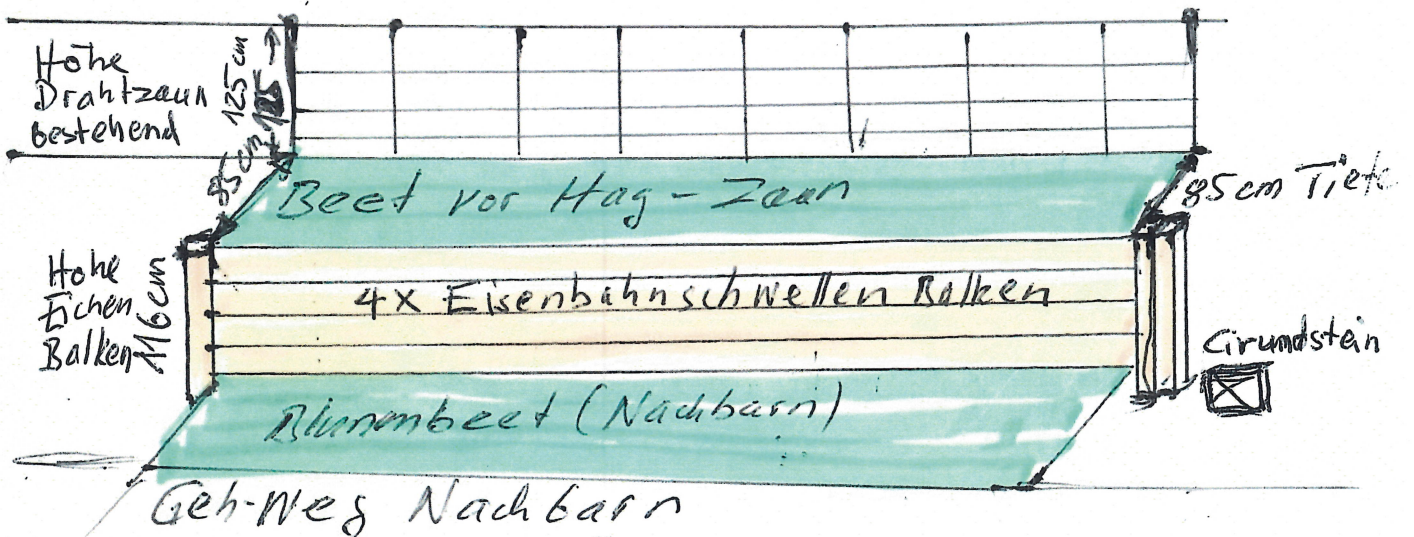 Höhe
Drahtzaun
bestehend
125cm
125
85cm
Beet vor Hag-Zaun
85cm Tiefe
Höhe
Eichen
Balken
116cm
4x Eisenbahnschwellen Balken
Grundstein
Blumenbeet (Nachbarn)
Geh-Weg Nachbarn